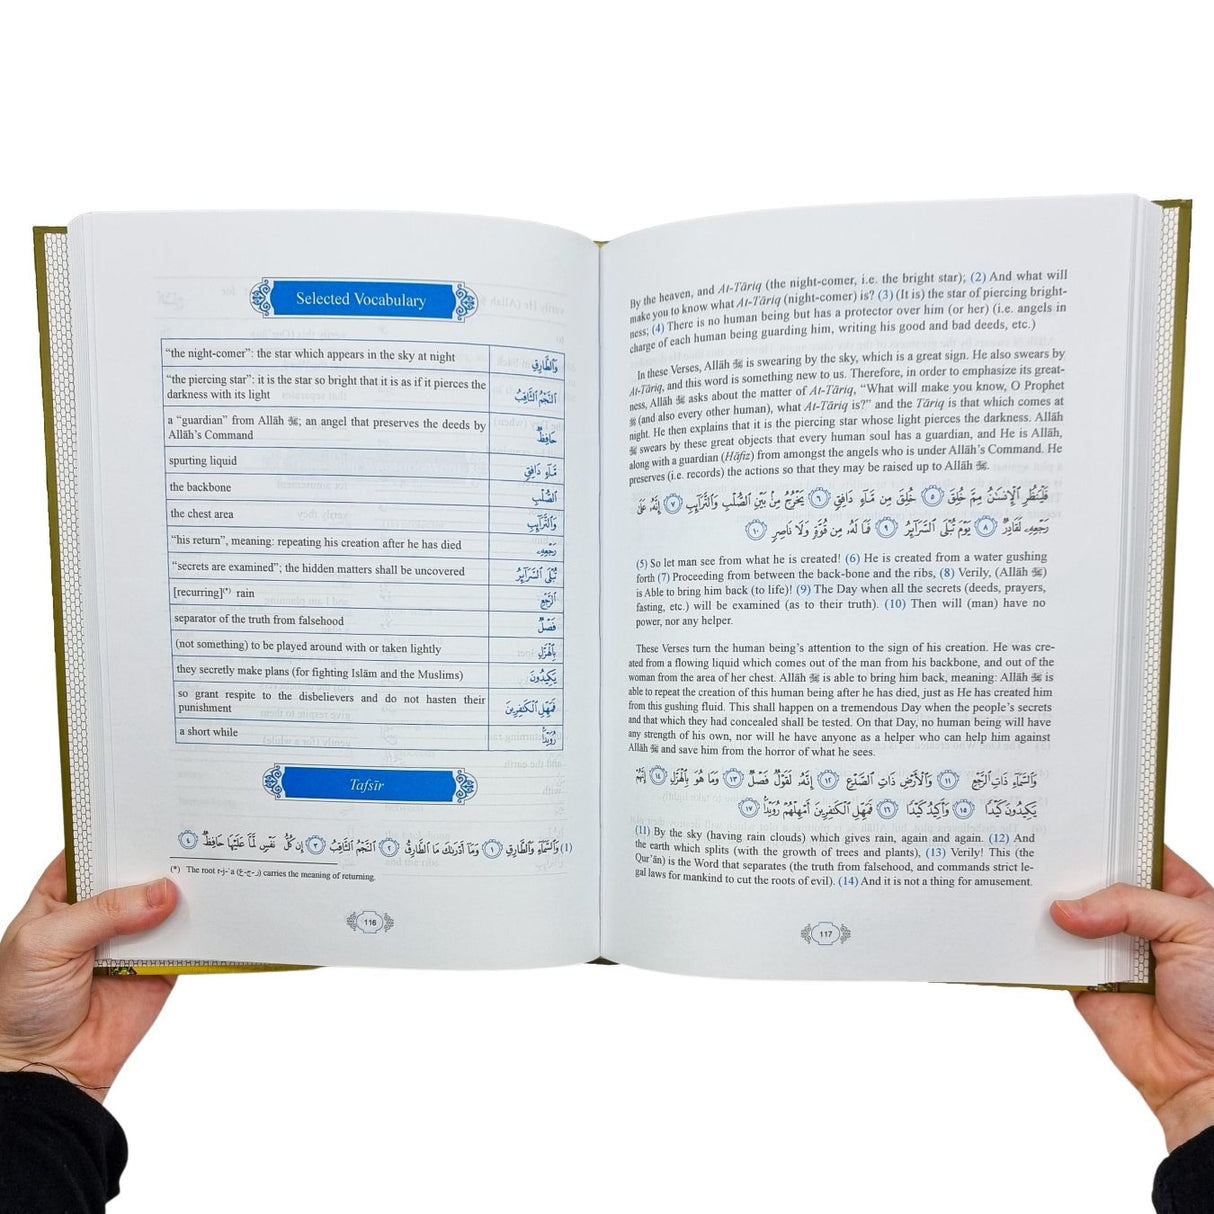 Selected Vocabulary
“the night-comer”: the star which appears in the sky at night وَٱلطَّارِقِ
“the piercing star”: it is the star so bright that it is as if it pierces the
darkness with its light ٱلنَّجْمُ ٱلثَّاقِبُ
a “guardian” from Allāh ﷻ; an angel that preserves the deeds by
Allāh’s Command حَافِظٌ
spurting liquid مَّآءٍ دَافِقٍ
the backbone ٱلصُّلْبِ
the chest area وَٱلتَّرَآئِبِ
“his return”, meaning: repeating his creation after he has died رَجْعِهِۦ
“secrets are examined”; the hidden matters shall be uncovered تُبْلَى ٱلسَّرَآئِرُ
[recurring](*) rain ٱلرَّجْعِ
separator of the truth from falsehood فَصْلٌ
(not something) to be played around with or taken lightly بِٱلْهَزْلِ
they secretly make plans (for fighting Islām and the Muslims) يَكِيدُونَ
so grant respite to the disbelievers and do not hasten their
punishment فَمَهِّلِ ٱلْكَٰفِرِينَ
a short while رُوَيْدًۢا
Tafsīr
(1) وَٱلسَّمَآءِ وَٱلطَّارِقِ ١ وَمَآ أَدْرَىٰكَ مَا ٱلطَّارِقُ ٢ ٱلنَّجْمُ ٱلثَّاقِبُ ٣ إِن كُلُّ نَفْسٍ لَّمَّا عَلَيْهَا حَافِظٌ ٤
(*) The root r-j-`a (ر-ج-ع) carries the meaning of returning.
116
By the heaven, and At-Târiq (the night-comer, i.e. the bright star); (2) And what will
make you to know what At-Târiq (night-comer) is? (3) (It is) the star of piercing bright-
ness; (4) There is no human being but has a protector over him (or her) (i.e. angels in
charge of each human being guarding him, writing his good and bad deeds, etc.)
In these Verses, Allāh ﷻ is swearing by the sky, which is a great sign. He also swears by
At-Târiq, and this word is something new to us. Therefore, in order to emphasize its great-
ness, Allāh ﷻ asks about the matter of At-Târiq, “What will make you know, O Prophet
ﷺ (and also every other human), what At-Târiq is?” and the Târiq is that which comes at
night. He then explains that it is the piercing star whose light pierces the darkness. Allāh
ﷻ swears by these great objects that every human soul has a guardian, and He is Allāh,
along with a guardian (Hāfiz) from amongst the angels who is under Allāh’s Command. He
preserves (i.e. records) the actions so that they may be raised up to Allāh ﷻ.
فَلْيَنظُرِ ٱلْإِنسَٰنُ مِمَّ خُلِقَ ٥ خُلِقَ مِن مَّآءٍ دَافِقٍ ٦ يَخْرُجُ مِنۢ بَيْنِ ٱلصُّلْبِ وَٱلتَّرَآئِبِ ٧ إِنَّهُۥ عَلَىٰ
رَجْعِهِۦ لَقَادِرٌ ٨ يَوْمَ تُبْلَى ٱلسَّرَآئِرُ ٩ فَمَا لَهُۥ مِن قُوَّةٍ وَلَا نَاصِرٍ ١٠
(5) So let man see from what he is created! (6) He is created from a water gushing
forth (7) Proceeding from between the back-bone and the ribs, (8) Verily, (Allāh ﷻ)
is Able to bring him back (to life)! (9) The Day when all the secrets (deeds, prayers,
fasting, etc.) will be examined (as to their truth). (10) Then will (man) have no
power, nor any helper.
These Verses turn the human being’s attention to the sign of his creation. He was cre-
ated from a flowing liquid which comes out of the man from his backbone, and out of the
woman from the area of her chest. Allāh ﷻ is able to bring him back, meaning: Allāh ﷻ is
able to repeat the creation of this human being after he has died, just as He has created him
from this gushing fluid. This shall happen on a tremendous Day when the people’s secrets
and that which they had concealed shall be tested. On that Day, no human being will have
any strength of his own, nor will he have anyone as a helper who can help him against
Allāh ﷻ and save him from the horror of what he sees.
وَٱلسَّمَآءِ ذَاتِ ٱلرَّجْعِ ١١ وَٱلْأَرْضِ ذَاتِ ٱلصَّدْعِ ١٢ إِنَّهُۥ لَقَوْلٌ فَصْلٌ ١٣ وَمَا هُوَ بِٱلْهَزْلِ ١٤ إِنَّهُمْ
يَكِيدُونَ كَيْدًا ١٥ وَأَكِيدُ كَيْدًا ١٦ فَمَهِّلِ ٱلْكَٰفِرِينَ أَمْهِلْهُمْ رُوَيْدًۢا ١٧
(11) By the sky (having rain clouds) which gives rain, again and again. (12) And
the earth which splits (with the growth of trees and plants), (13) Verily! This (the
Qur’ān) is the Word that separates (the truth from falsehood, and commands strict le-
gal laws for mankind to cut the roots of evil). (14) And it is not a thing for amusement.
117